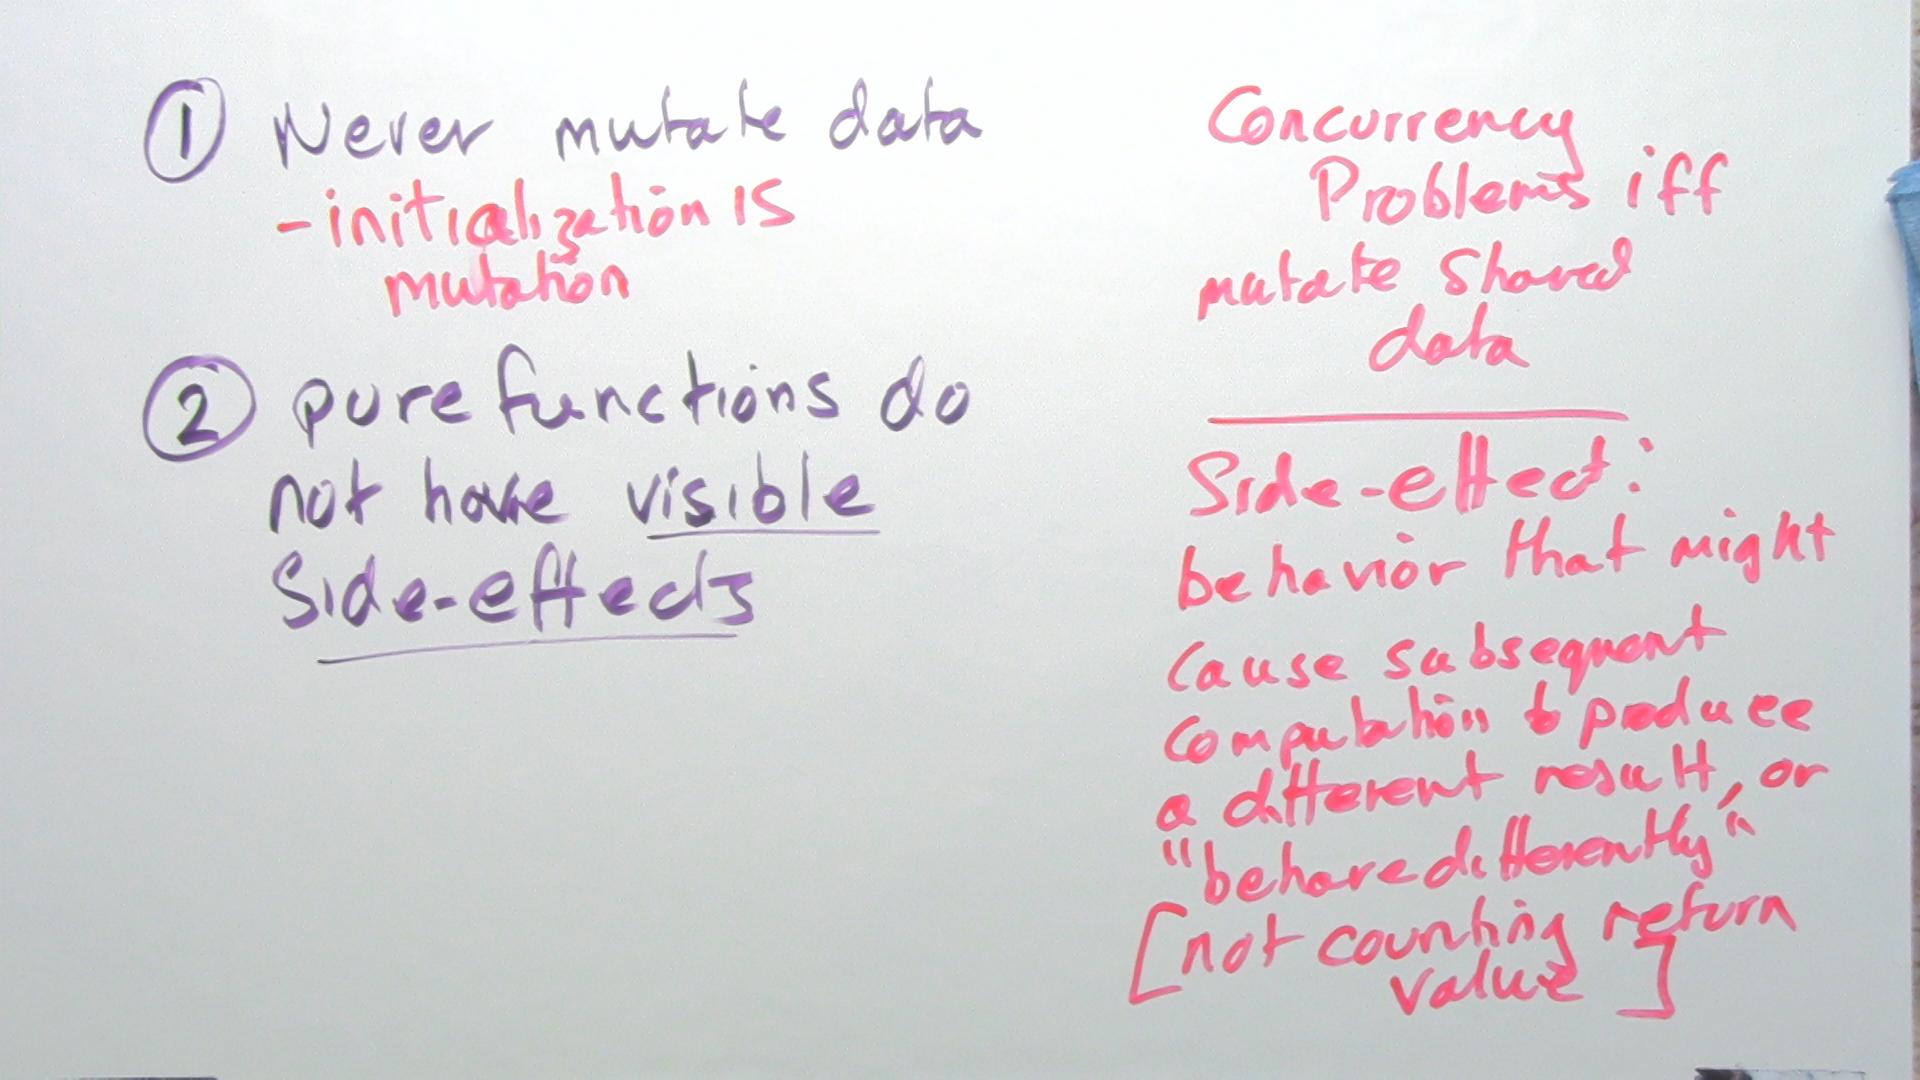 ① Never mutate data
- initialization is
mutation
② pure functions do
not have visible
side-effects
Concurrency
Problems iff
mutate shared
data
Side-effect:
behavior that might
cause subsequent
computation to produce
a different result, or
"behave differently"
[not counting return
value]